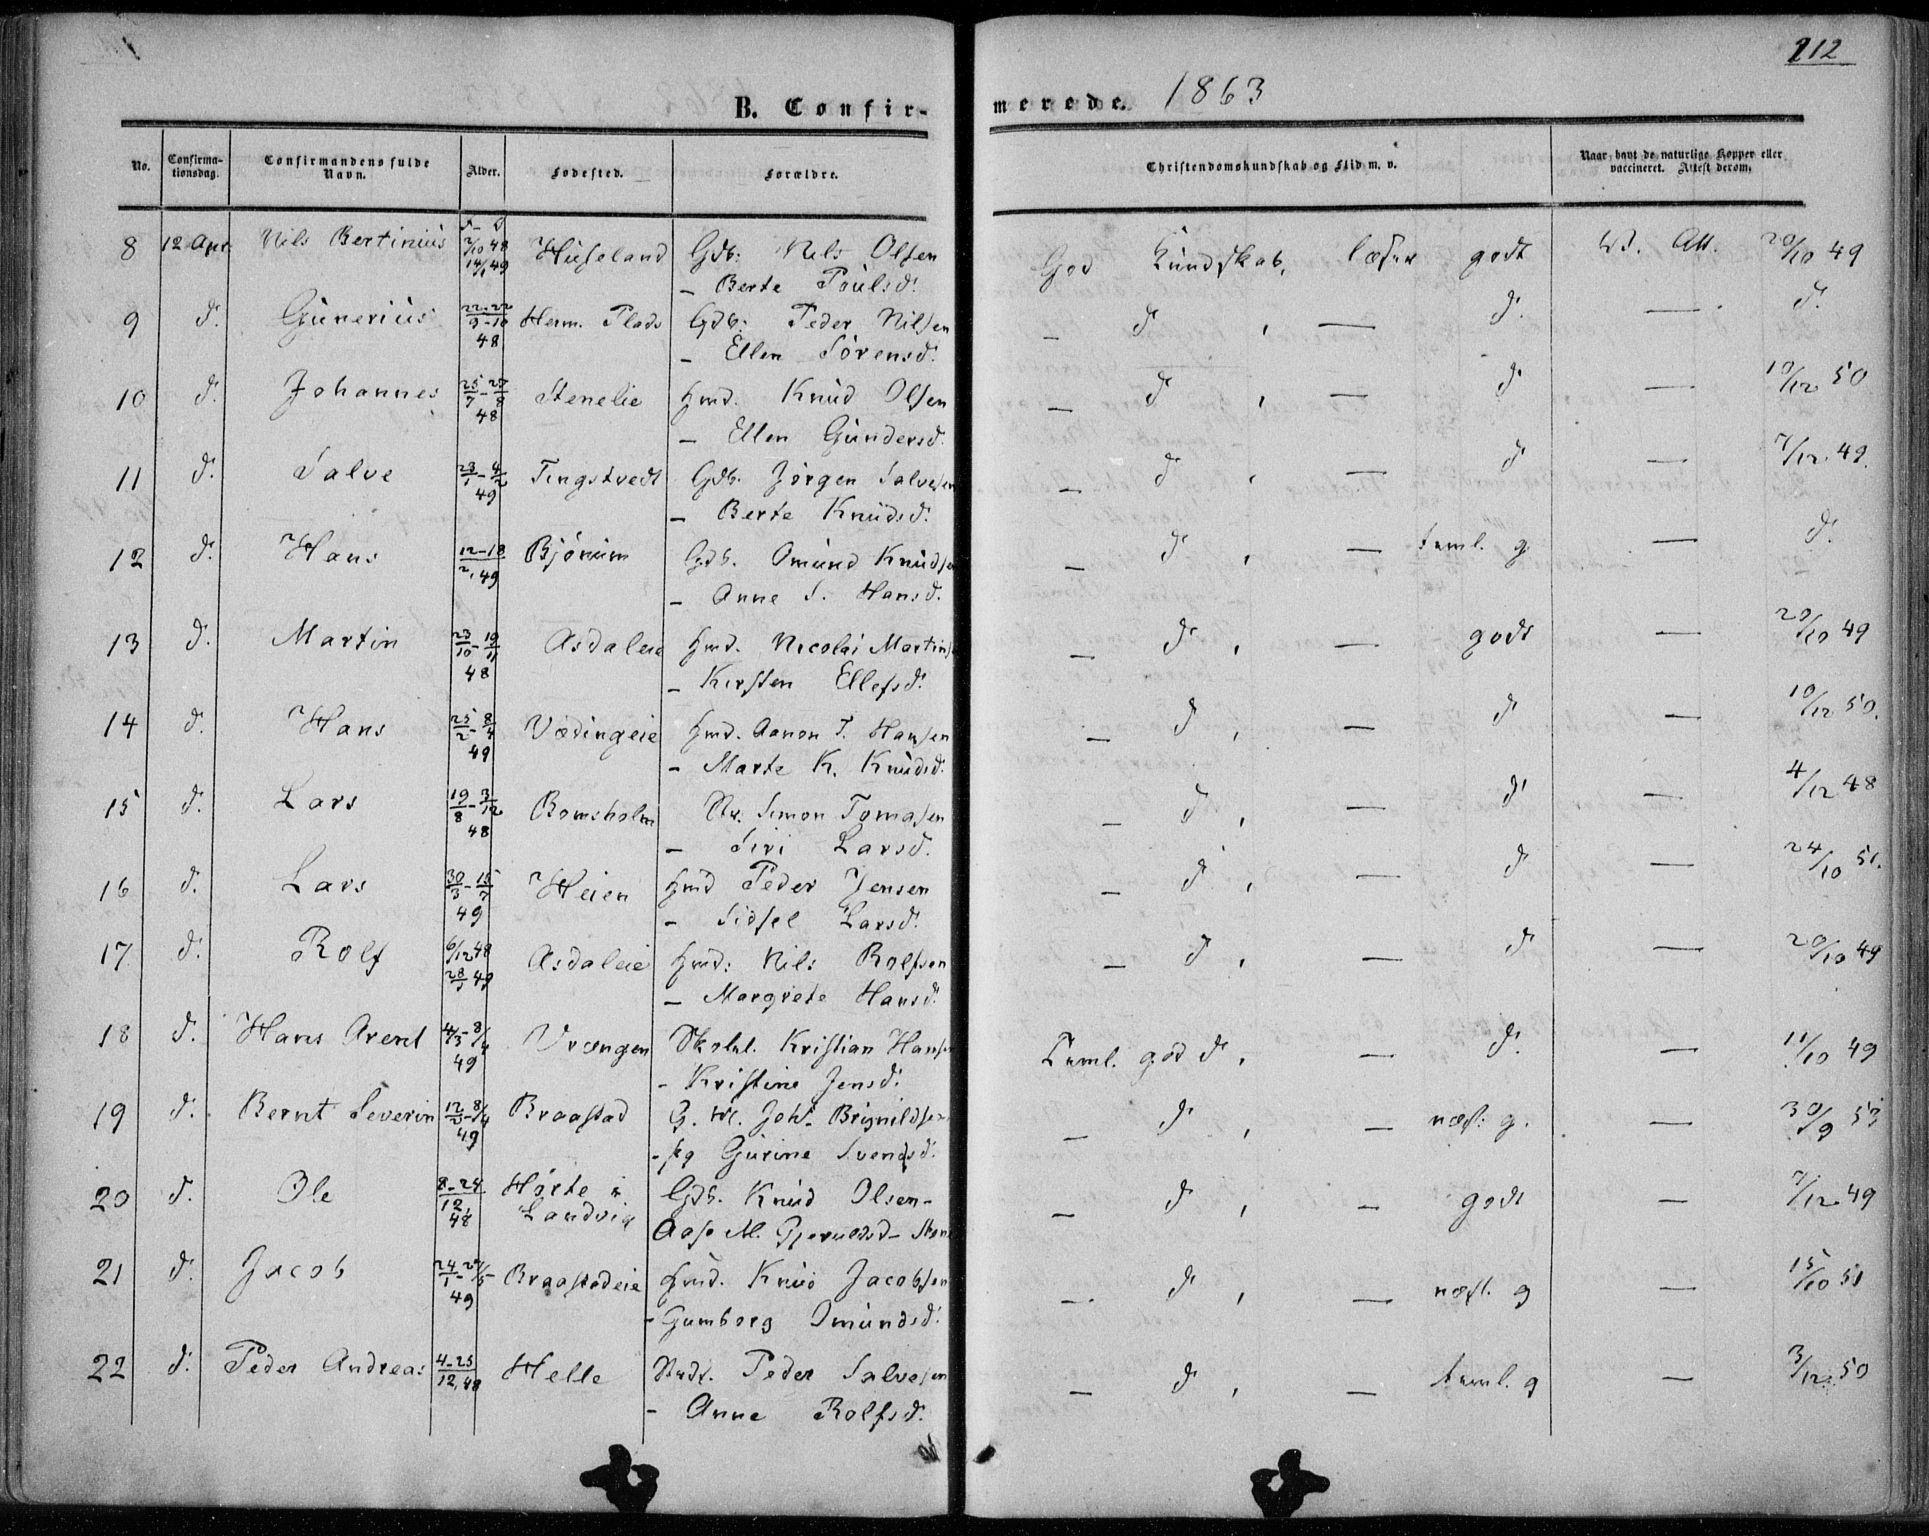 212
B. Confirmerede. 1863
No. Confirmationsdag. Confirmandens fulde Navn. Alder. Fødested. Forældre. Christendomskundskab og Flid m. v. Naar havt de naturlige Kopper eller vaccineret. Attest derom.
8 12 Apr. Nils Bertinius 7/10 48 Huseland Gdb: Nils Olsen God Kundskab, læser godt W. Att. 20/10 49
14/1 49 – Berte Poulsd.
9 d. Gunerius 22/9 - 22/10 Herm. Plads Gdb: Peder Nilsen – d , — d. — d.
48 – Ellen Sörensd.
10 d. Johannes 25/7 - 27/8 Stenelie Hmd. Knud Olsen – d , — d — 10/12 50
48 – Ellen Gundersd.
11 d. Salve 23/1 - 4/2 Tingstvedt Gdb. Jörgen Salvesen – d , — d — 7/12 49.
49 – Berte Knudsd.
12 d. Hans 12-18 Bjönum Gdb. Omund Knudsen – d , — teml. g. — d.
2, 49 – Anne S. Hansd.
13 d. Martin 23/10 - 19/11 Asdaleie Hmd. Nicolai Martins – d , — godt — 20/10 49
48 – Kirsten Ellefsd.
14 d. Hans 25/2 - 8/4 Vædingeie Hmd. Aanon T. Hansen – d , — d — 10/12 50.
49 – Marte K. Knudsd.
15 d. Lars 19/8 - 3/12 Bomsholm Str. Simon Tomasen – d , — d — 4/12 48
48 – Siri Larsd.
16 d. Lars 30/3 - 15/7 Heien Hmd Peder Jensen – d , — d — 24/10 51.
49 – Sidsel Larsd.
17 d. Rolf 6/12 48 Asdaleie Hmd: Nils Rolfsen – d , — d — 20/10 49
28/1 49 – Margrete Hansd.
18 d. Hans Arent 4/3 - 8/4 Vrængen Skolel. Kristian Hansen Teml. god d. , — d. — 11/10 49
49 – Kristine Jensd.
19 d. Bernt Severin 12/2 - 8/4 Braastad G. M. Joh. Brynildsen – d , — næst. g. — 30/9 53
49 – Pg Gurine Svendsd.
20 d. Ole 8-24 Hörte i Gdb. Knud Olsen – – d , — godt — 7/12 49
12, 48 Landvig Aase M. Gjeruldsd –
21 d. Jacob 24/1 - Braastadeie Hmd. Knud Jacobsen – d , — næst. g — 15/10 51
49 – Gumborg Omundsd.
22 d. Peder Andreas 4-25 Helle Peder Salvesen – d , — teml. g — 3/12 50
12, 48 – Anne Rolfsd.